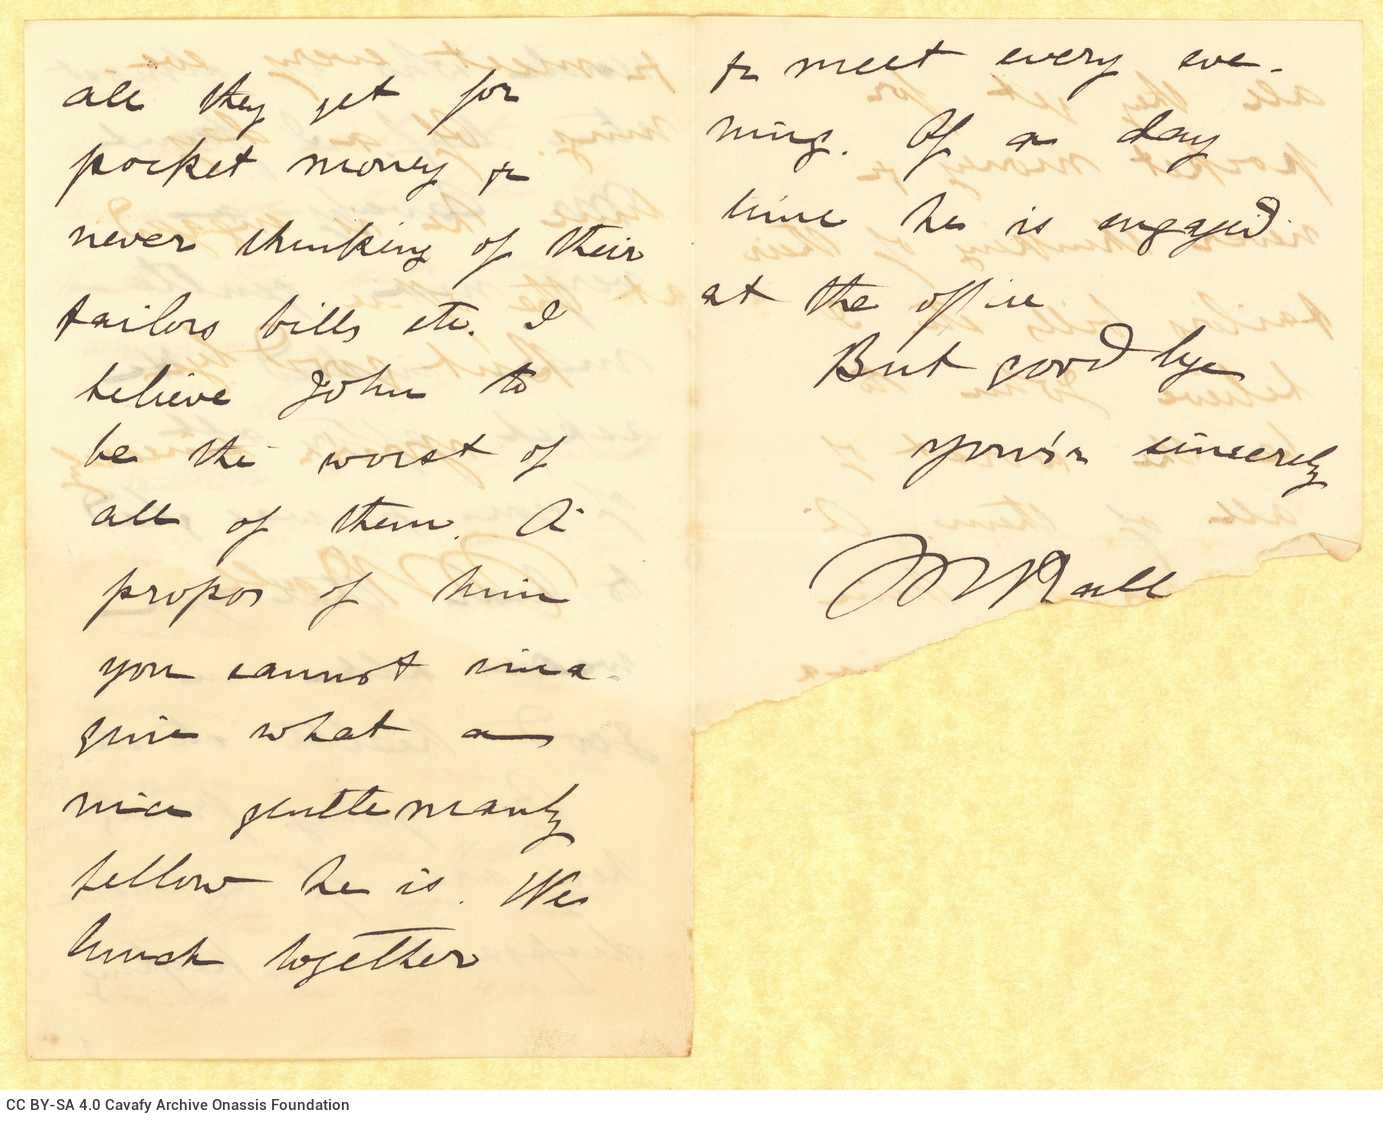 all they get for
pocket money &
never thinking of their
tailors bills etc. I
believe John to
be the worst of
all of them. A
propos of him
you cannot ima-
gine what a
nice gentlemanly
fellow he is. We
lunch together
& meet every eve-
ning. Of a day
time he is engaged
at the office
But good bye
your's sincerely
M Ralli
CC BY-SA 4.0 Cavafy Archive Onassis Foundation